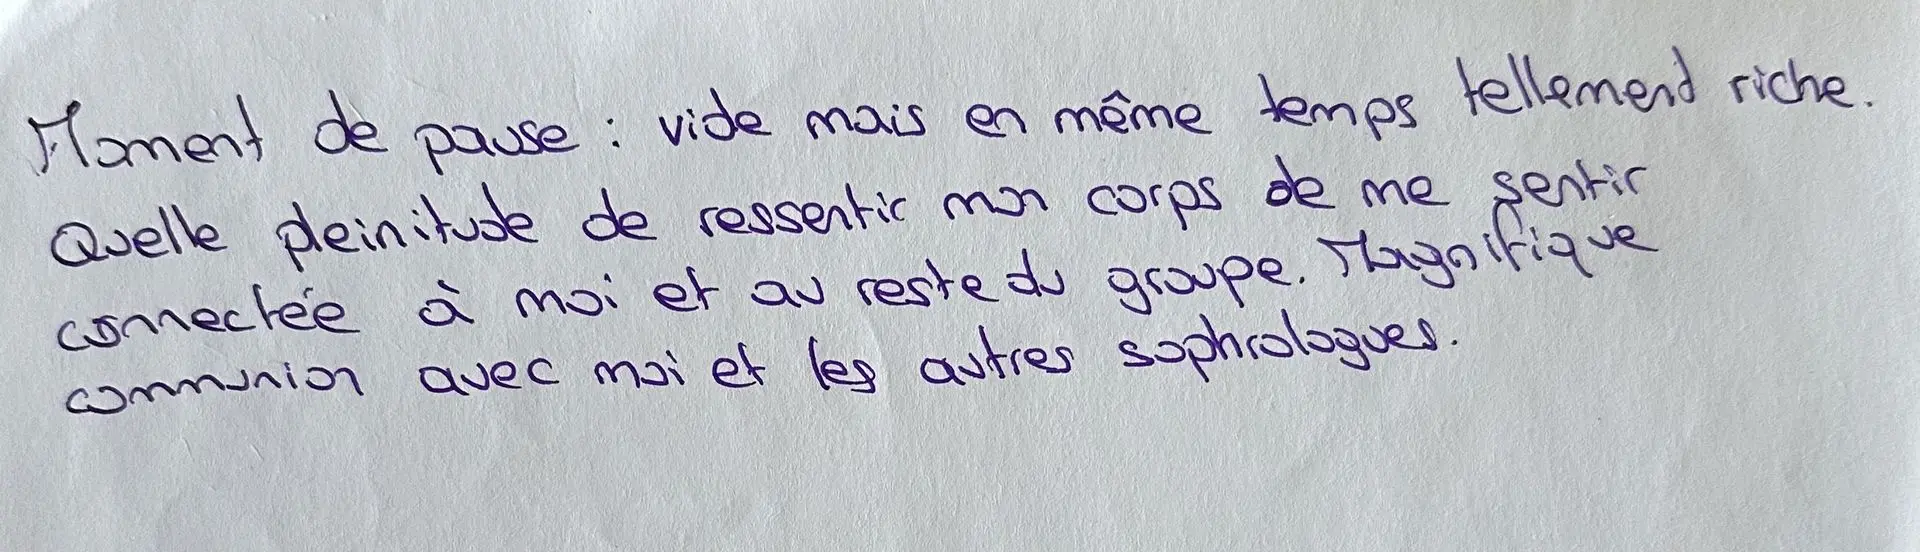 Moment de pause : vide mais en même temps tellement riche.
Quelle pleinitude de ressentir mon corps de me sentir
connectée à moi et au reste du groupe. Magnifique
communion avec moi et les autres sophrologues.